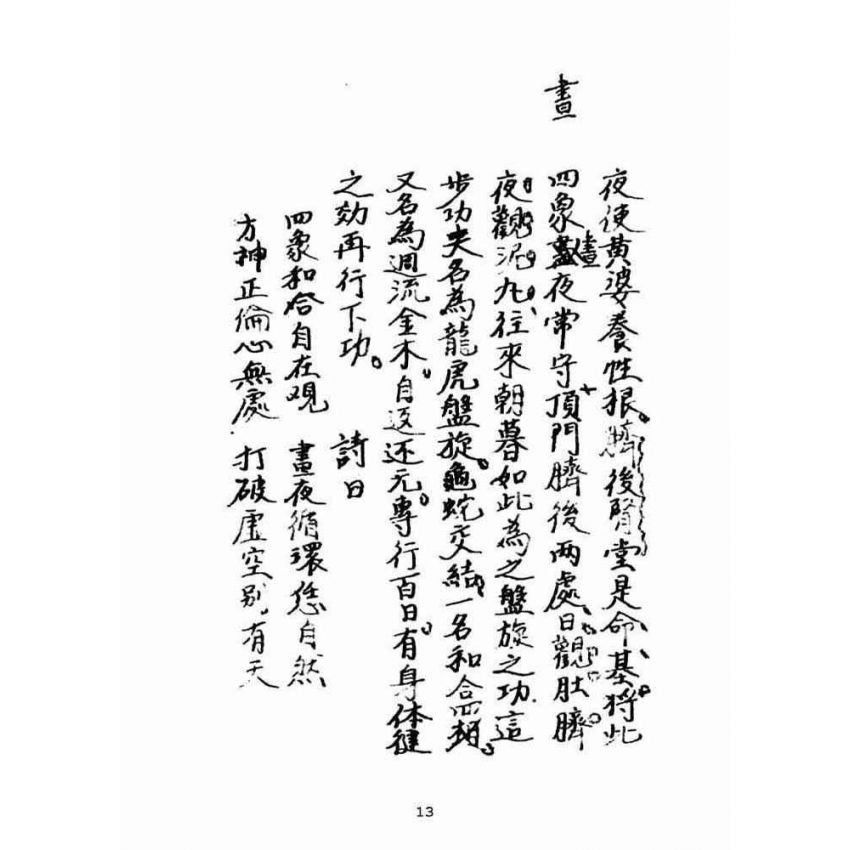 晝
夜使黃婆養性根。臍後腎堂是命、基。將此
四象晝夜常守頂門臍後兩處、日觀肚臍。
夜觀泥丸、往來朝暮如此為之盤旋之功.這
步功夫名為龍虎盤旋。龜蛇交結。一名和合四相。
又名為週流金木。自返还元。專行百日。有身体健
之効再行下功。 詩曰
四象和合自在观 晝夜循環恁自然
方神正倫心無處 打破虛空别有天
13